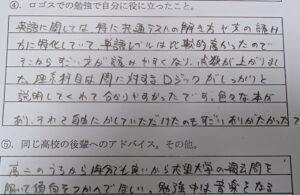 ④. ロゴスでの勉強で自分に役に立ったこと。
英語に関しては、特に共通テストの解き方や文の読み
かたに特化していて、単語レベルは比較的高かったので
そこからすごい文が読みやすくなり、点数が上がりまし
た。理系科目は問に対するロジックがしっかりと
説明してくれて分かりやすかったです。色々な本が
あり、それを自由にかしていただけたのもすごいありがたかったで
⑤. 同じ高校の後輩へのアドバイス。その他。
高二のうちから何分でも良いから志望大学の過去問を
解いて傾向をつかんでほしい。勉強中は音楽をなる